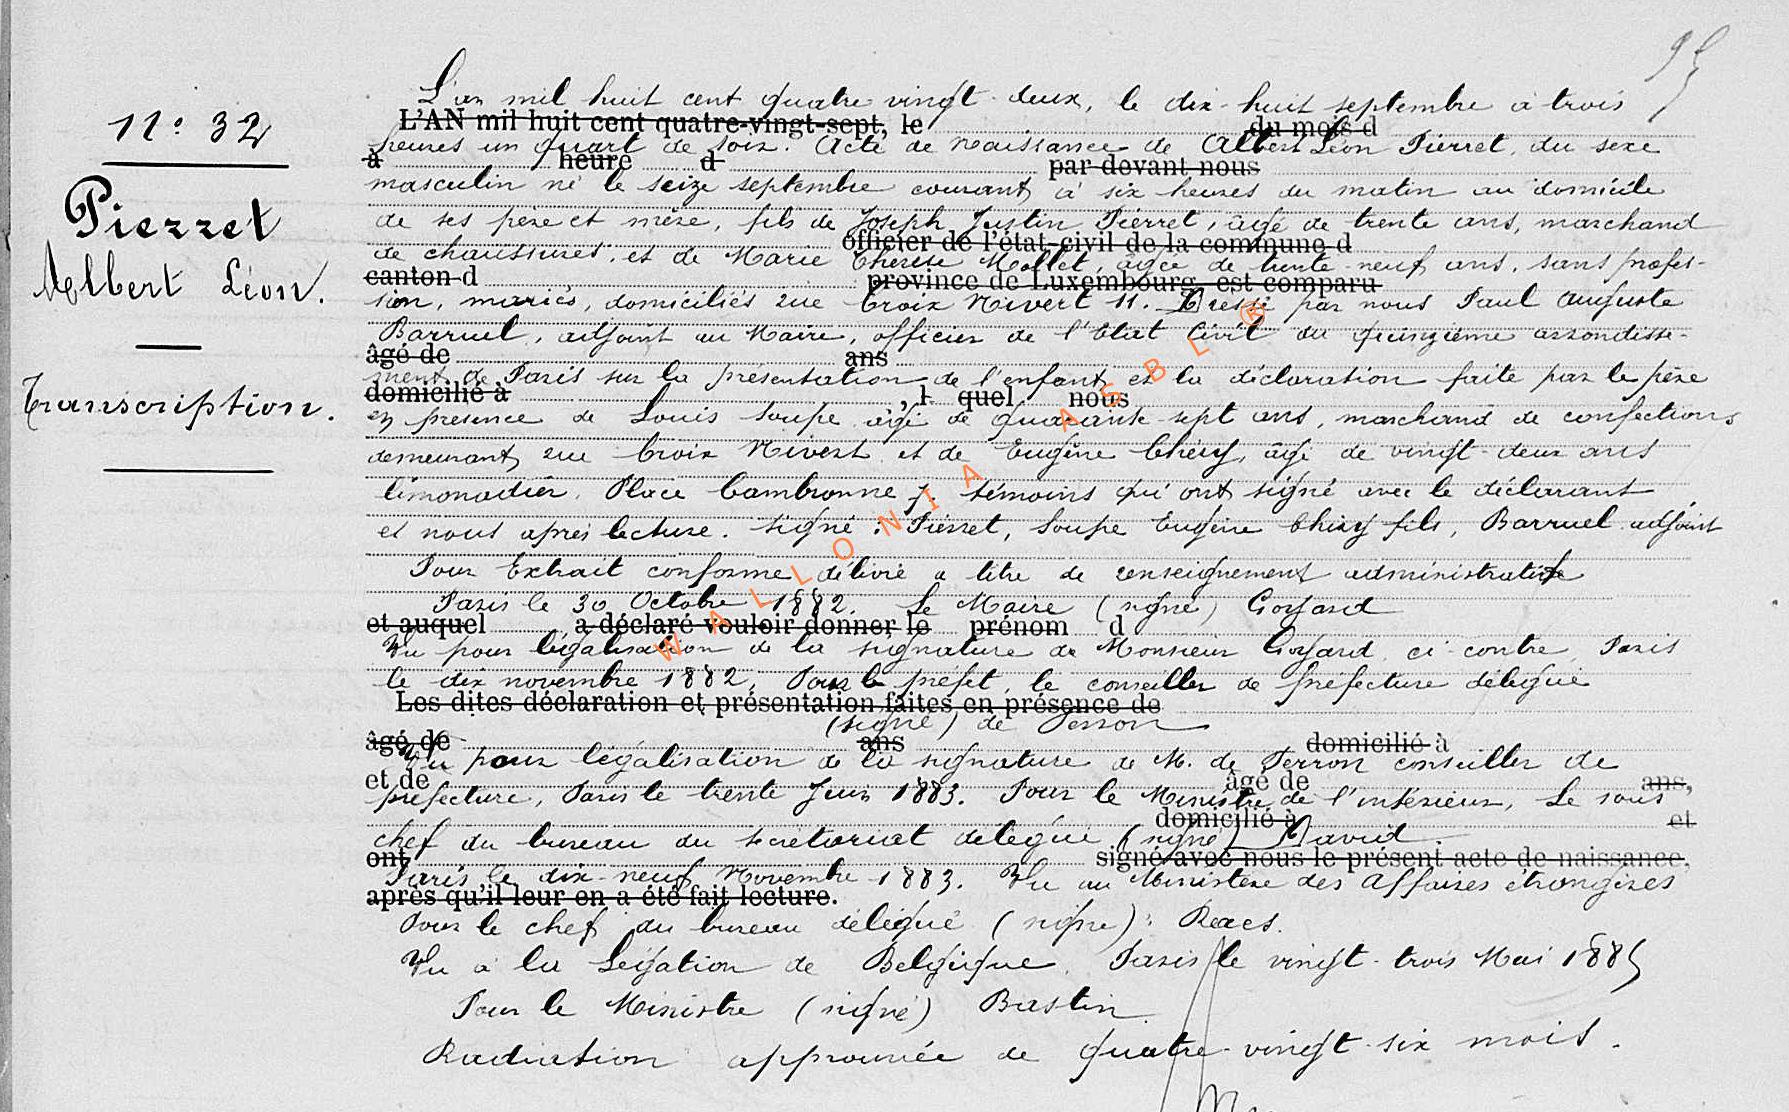 95
N° 32
Pierret
Albert Léon.
Transcription.
L'an mil huit cent quatre vingt-deux, le dix-huit septembre à trois
L'AN mil huit cent quatre-vingt-sept, le du mois d
heures un quart de soir. Acte de naissance de Albert Léon Pierret, du sexe
à heure d par-devant nous
masculin né le seize septembre courant à six heures du matin au domicile
de ses père et mère, fils de Joseph Justin Pierret, âgé de trente ans, marchand
officier de l'état-civil de la commune d
de chaussures, et de Marie Thérèse Mollet, âgée de trente-neuf ans, sans profes-
canton d province de Luxembourg, est comparu
sion, mariés, domiciliés rue Croix Nivert 11. Dressé par nous Paul Auguste
Barruel, adjoint au Maire, officier de l'Etat Civil du quinzième arrondisse-
âgé de ans
ment de Paris sur la présentation de l'enfant et la déclaration faite par le père
domicilié à , l quel nous
en présence de Louis Soupe âgé de quarante-sept ans, marchand de confections
demeurant rue Croix Nivert et de Eugène Chéry, âgé de vingt-deux ans
limonadier, Place Cambronne 7. témoins qui ont signé avec le déclarant
et nous après lecture. Signé : Pierret, Soupe Eugène Chéry fils, Barruel adjoint
Pour Extrait conforme délivré à titre de renseignement administratif
Paris le 30 Octobre 1882. Le Maire (signé) Goyard
et auquel a déclaré vouloir donner le prénom d
Vu pour légalisation de la signature de Monsieur Goyard ci-contre Paris
le dix novembre 1882, Pour le préfet, le conseiller de préfecture délégué
Les dites déclaration et présentation faites en présence de
(signé) de Perron
âgé de ans domicilié à
Vu pour légalisation de la signature de M. de Perron conseiller de
et de âgé de ans,
préfecture, Paris le trente Juin 1883. Pour le Ministre de l'intérieur, Le sous
domicilié à et
chef du bureau du secrétariat délégué (signé) David.
ont signé avec nous le présent acte de naissance,
Paris le dix-neuf Novembre 1883. Vu au Ministère des Affaires étrangères
après qu'il leur en a été fait lecture.
Pour le chef du bureau délégué (signé) :
Vu à la Légation de Belgique. Paris le vingt-trois Mai 1885
Pour le Ministre (signé) Bastin.
Radiation approuvée de quatre-vingt-six mots.
WALLONIA ASBL ®